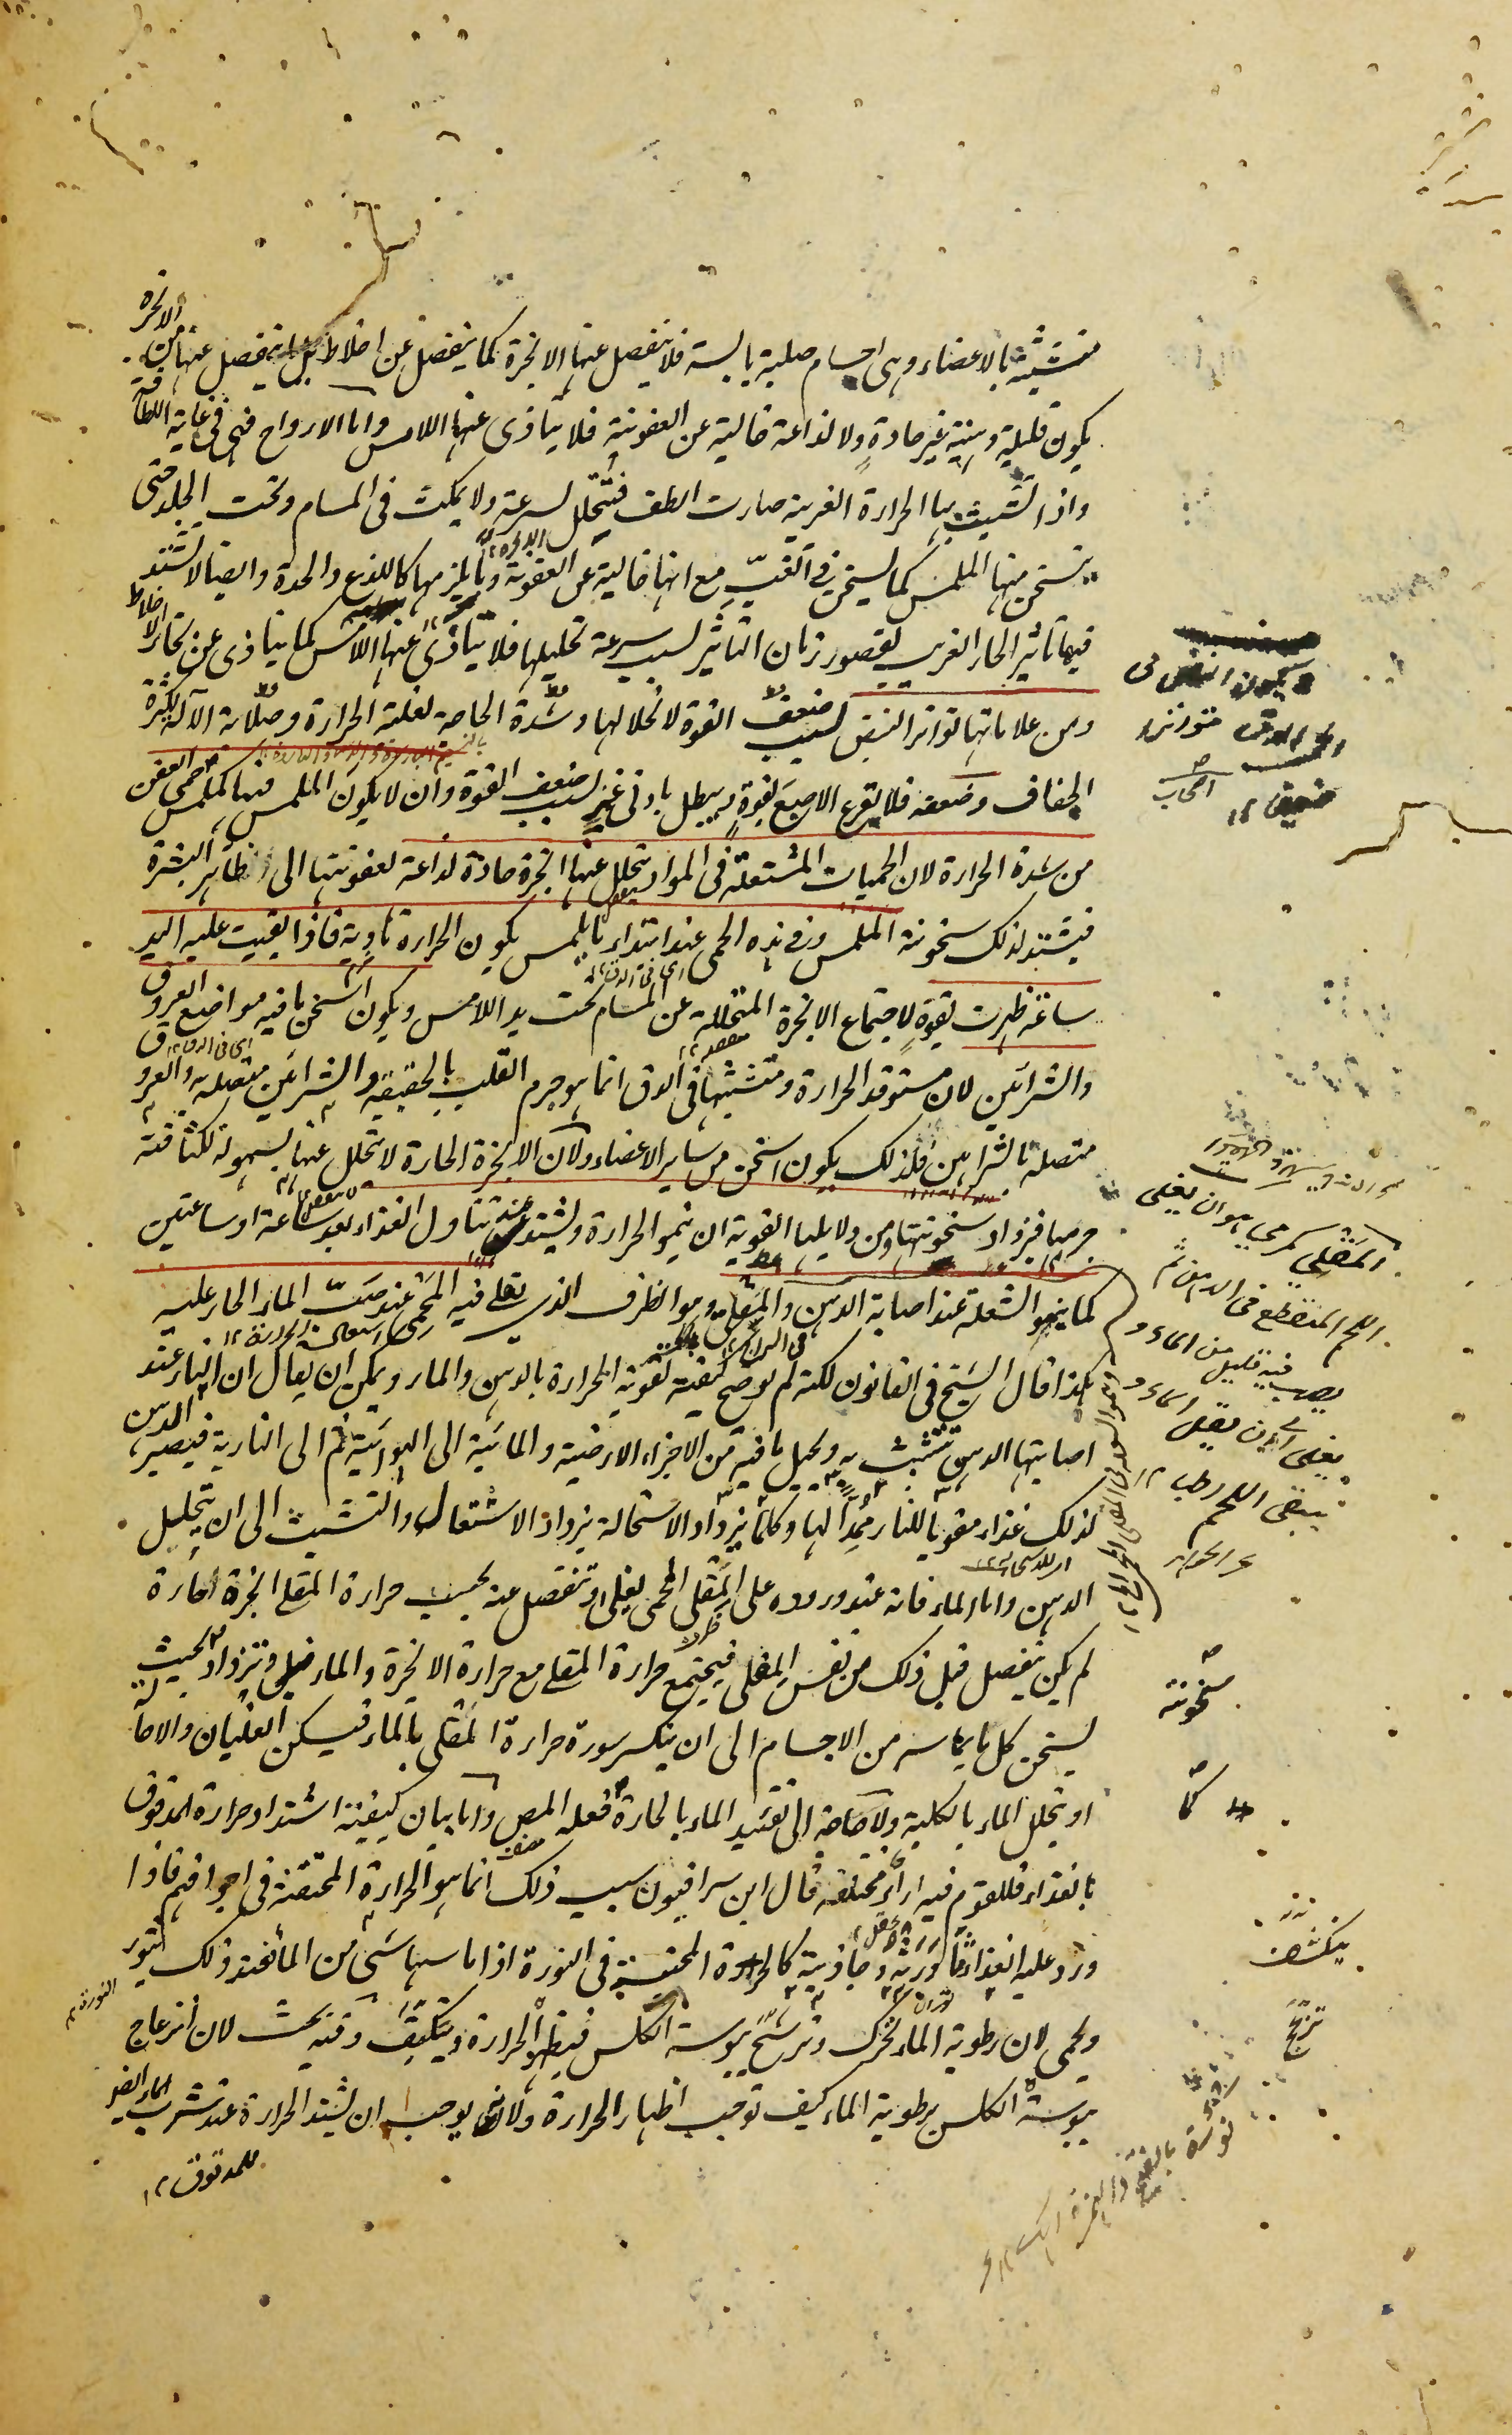 متشبثة بالاعضاء وهى اجسام صلبة يابسة فلا ينفصل عنها الابخرة كما ينفصل عن اخلاط بل ما ينفصل عنها من الابخرة
يكون قليلة وهينة غير حادة ولا لذاعة خالية عن العفونية فلا يتاذى عنها اللامس واما الارواح فهى فى غاية اللطافة
واذا تشبث بها الحرارة الغريبة صارت الطف فتتحلل بسرعة ولا يمكث فى المسام وتحت الجلد حتى
يتسخن منها الملمس كما يسخن فى الغب مع انها خالية عن العفونة وما يلزمها كاللذع والحدة وايضا لا تشتد
فيها تاثير الحار الغريب لقصور زمان التاثير بسبب سرعة تحليلها فلا يتاذى عنها اللامس كما يتاذى عن بخار الاخلاط
ومن علاماتها تواتر النبض بسبب ضعف القوة لانحلالها وشدة الحاجة لغلبة الحرارة وصلابة الآلة لكثرة
الجفاف وضعفه فلا يقرع الاصبع بقوة ويبطل بادنى غمز بسبب ضعف القوة وان لا يكون الملمس فيها كملمس حمى العفن
من شدة الحرارة لان الحميات المشتعلة فى المواد يتحلل عنها ابخرة حادة لذاعة لعفونتها الى ظاهر البشرة
فيشتد لذلك سخونة الملمس وفى هذه الحمى عند ابتداء ما يلمس يكون الحرارة هادية فاذا ابقيت عليه اليد
ساعة ظهرت بقوة لاجتماع الابخرة المتحللة عن المسام تحت يد اللامس ويكون اسخن ما فيه مواضع العروق
والشرائين لان مستوقد الحرارة ومتشبثها فى الدق انما هو جرم القلب بالحقيقة والشرائين متصلة به والعروق
متصلة بالشرايين فلذلك يكون اسخن من ساير الاعضاء ولان الابخرة الحارة لا تتحلل عنها بسهولة لكثافة
جرمها فيزداد سخونتها ومن دلايلها القوية ان ينمو الحرارة ويشتد عند تناول الغذاء بعد ساعة او ساعتين
كما ينمو الشعلة عند اصابة الدهن والمقلى وهو الظرف الذى يقلى فيه المحمى عند صب الماء الحار عليه
هكذا قال الشيخ فى القانون لكنه لم يوضح كيفية تقوية الحرارة بالدهن والماء ويمكن ان يقال ان النار عند
اصابتها الدهن تتشبث به ويحيل ما فيه من الاجزاء الارضية والمائية الى الهوائية ثم الى النارية فيصير الدهن
لذلك غذاء مقويا للنار ممدا لها وكلما يزداد الاستحالة يزداد الاشتعال والتشبث الى ان يتحليل
الدهن واما الماء فانه عند وروده على المقلى المحمى يغلى وتنفصل عنه بحسب حرارة المقلى ابخرة حارة
لم يكن ينفصل قبل ذلك من نفس المقلى فيجتمع حرارة المقلى مع حرارة الابخرة والماء وتزداد بحيث
يسخن كل ما يماسه من الاجسام الى ان ينكسر سورة حرارة المقلى بالماء فيسكن الغليان والاحالة
او يتحلل الماء بالكلية ولا حاجة الى تقييد الماء بالحارة فعله المص واما بيان كيفية اشتداد حرارة المدقوق
بالغذاء فللقوم فيه اراء مختلفة قال ابن سرافيون سبب ذلك انما هو الحرارة المحتقنة فى اجوافهم فاذا
ورد عليه الغذاء كالحرارة المحتبسة فى النورة اذا ماسها شىء من الماء فعند ذلك يثور
ويحمى لان رطوبة الماء تحرك يبوسة الكلس فيظهر الحرارة وينكشف وفيه بحث لان انزعاج
يبوسة الكلس برطوبة الماء كيف توجب اظهار الحرارة ولانه يوجب ان يشتد الحرارة عند شرب الماء
للمدقوق ١٢
يكون النبض فى
ضعيفا ١٢
المقلى كمرمى هو ان يغلى
اللحم المنقطع فى الدهن ثم
يصب فيه قليل من الماء و
يبقى اللحم رطب ١٢
سخونة
كما
ينكشف